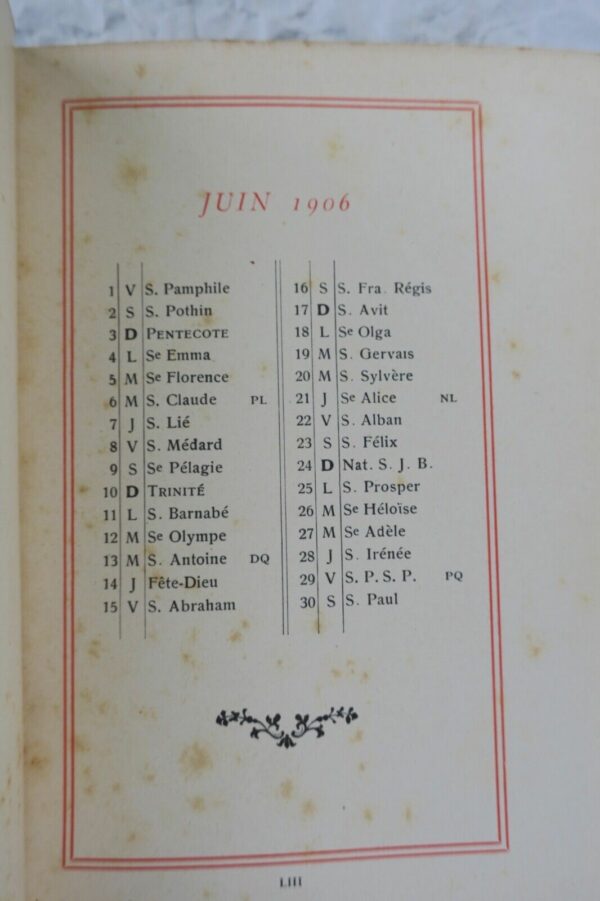 JUIN 1906
1 V S. Pamphile
2 S S. Pothin
3 D PENTECOTE
4 L Se Emma
5 M Se Florence
6 M S. Claude PL
7 J S. Lié
8 V S. Médard
9 S Se Pélagie
10 D TRINITÉ
11 L S. Barnabé
12 M Se Olympe
13 M S. Antoine DQ
14 J Fête-Dieu
15 V S. Abraham
16 S S. Fra. Régis
17 D S. Avit
18 L Se Olga
19 M S. Gervais
20 M S. Sylvère
21 J Se Alice NL
22 V S. Alban
23 S S. Félix
24 D Nat. S. J. B.
25 L S. Prosper
26 M Se Héloïse
27 M Se Adèle
28 J S. Irénée
29 V S. P. S. P. PQ
30 S S. Paul
LIII